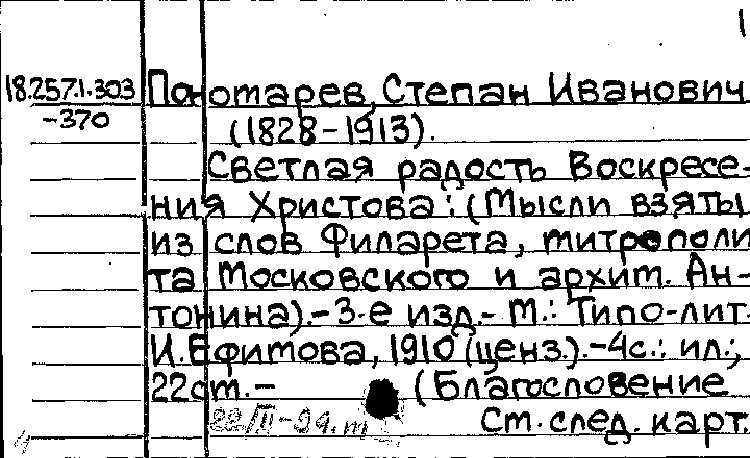 1
18.257.1.303
-370
Пономарев, Степан Иванович
(1828-1913).
Светлая радость Воскресе-
ния Христова: (Мысли взяты
из слов Филарета, митрополи
та Московского и архим. Ан-
тонина).-3-е изд.- М.: Типо-лит.
И. Ефимова, 1910 (ценз.).-4с.: ил.;
22см.- (Благословение
См. след. карт.